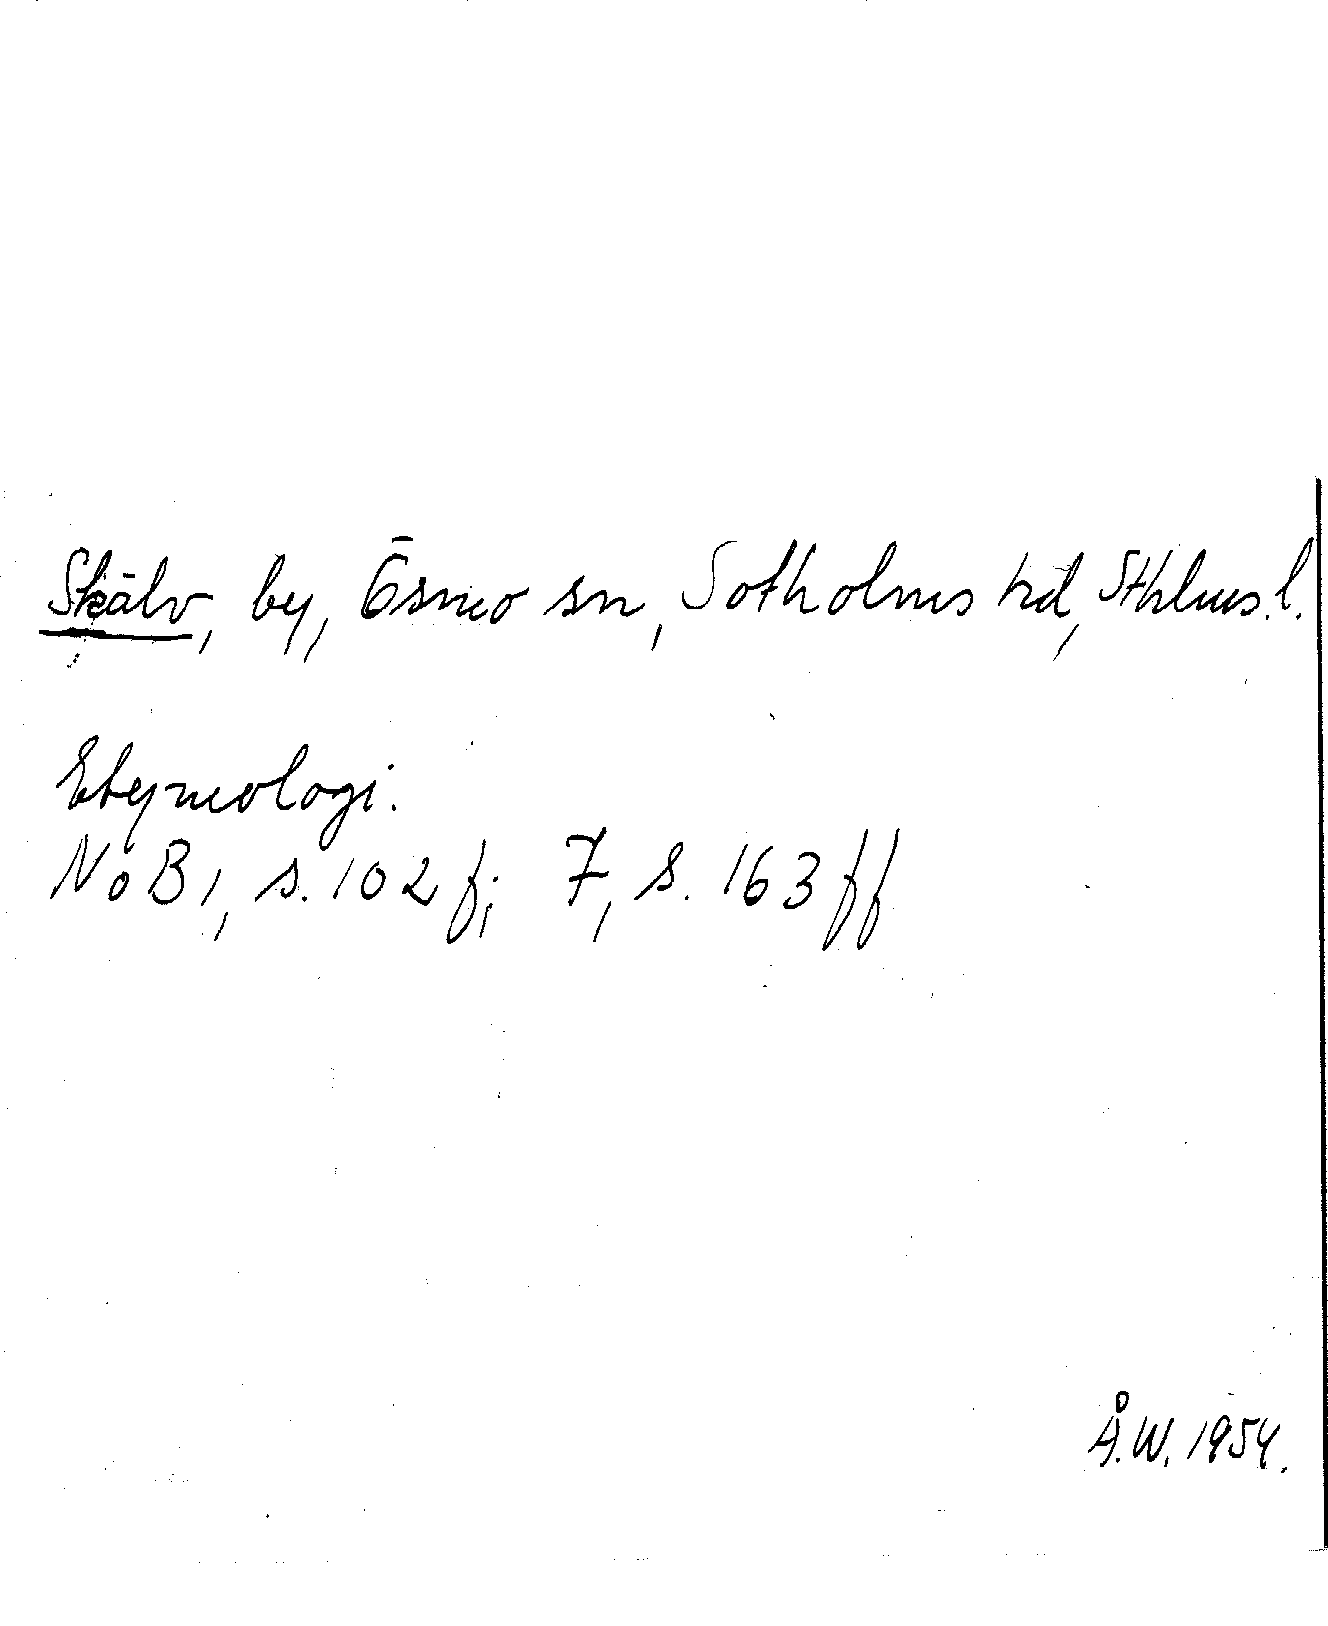 Skälv, by, Ösmo sn, Sotholms hd, Sthlms. l.
Etymologi.
NoB 1, s. 102 f; 7, s. 163 ff
Å.W. 1954.